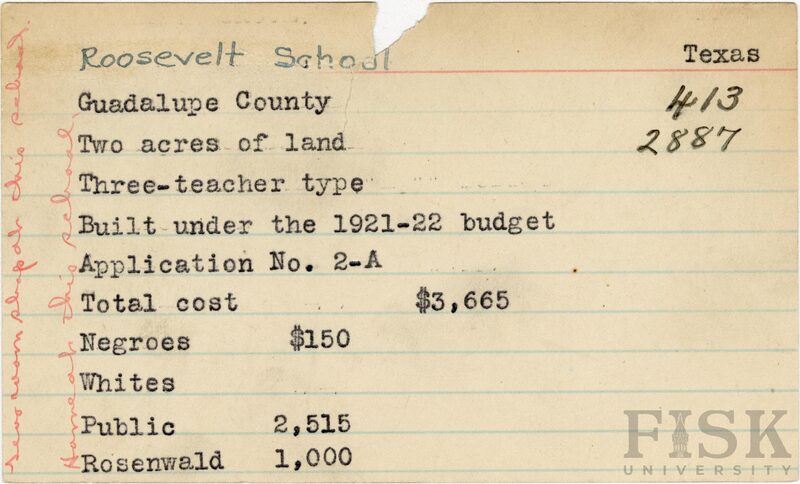 Roosevelt School
Texas
Guadalupe County
413
Two acres of land
2887
Three-teacher type
Built under the 1921-22 budget
Application No. 2-A
Total cost $3,665
Negroes $150
Whites
Public 2,515
Rosenwald 1,000
room shop at this school.
Home at this school.
FISK
UNIVERSITY